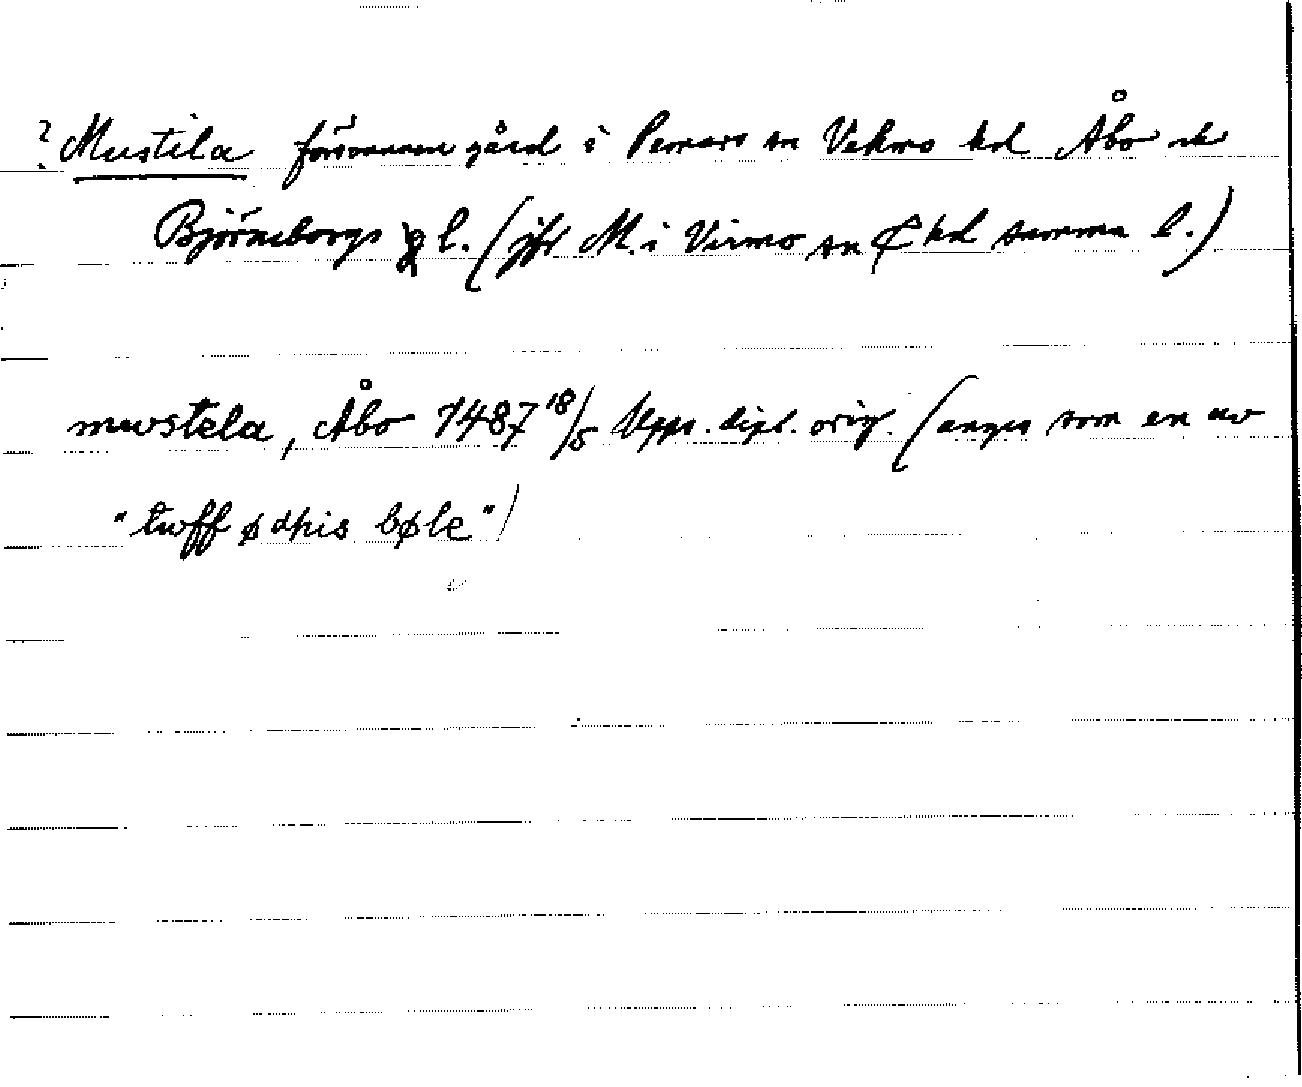 ? Mustila försvunnen gård i Pemars sn Vehmo hd Åbo ock
Björneborgs l. (jfr M. i Virmo sn hd samma l.)
mwstela, Åbo 1487 18/5 Upps. dipl. orig. (anges som en av
"twff ødhis bøle")